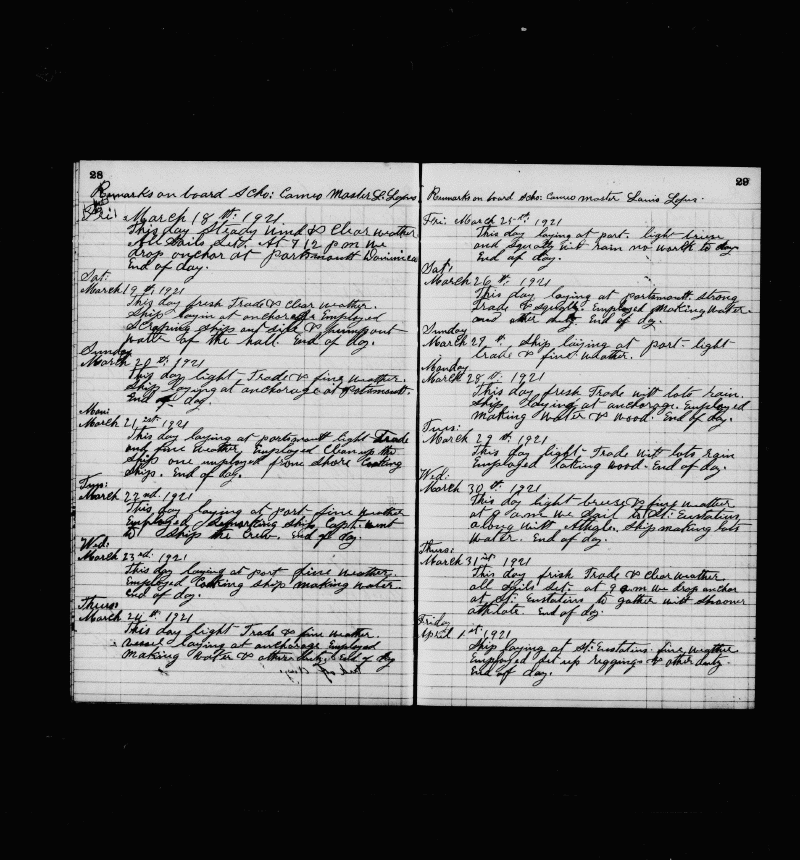 28
Remarks on board Scho: Cameo Master L. Lopes
Fri: March 18th: 1921.
This day steady wind & Clear weather
All Sails set. At 7 12 p m we
drop anchor at Portsmouth Dominica
End of day.
Sat:
March 19th 1921
This day fresh Trade & Clear weather.
Ship layin at anchorage Employed
Scraping ship out side & pump out
water of the hall. End of day.
Sunday
March 20th 1921
This day light Trade & fine weather.
Ship laying at anchorage at Portsmouth.
End of day.
Mon:
March 21st 1921
This day laying at portsmouth light Trade
and fine weather Employed Clean up the
Ship one employed from shore Coating
Ship. End of day.
Tues:
March 22nd. 1921
This day laying at port fine weather
Employed ship. Capt. went
to Ship the Crew. End of day.
Wed:
March 23rd. 1921
This day laying at port fine weather.
Employed Coating ship making water
End of day.
Thurs:
March 24th. 1921
This day light Trade & fine weather.
vessel laying at anchorage Employed
Making water & other duty. End of day
End of day.
29
Remarks on board Scho: Cameo master Louis Lopes.
Fri: March 25th. 1921
This day laying at port. light breeze
and squally with rain no work to day
End of day.
Sat:
March 26th. 1921
This day laying at portsmouth. strong
Trade & squalls. Employed Making Water
and other duty. End of day.
Sunday
March 27th. Ship laying at port. light
trade & fine weather.
Monday
March 28th. 1921
This day fresh Trade with lots rain.
Ship laying at anchorage. Employed
making water & wood. End of day.
Tues:
March 29th. 1921
This day light Trade with lots rain
Employed taking wood. End of day.
Wed:
March 30th. 1921
This day light breeze & fine weather
at 9 a.m we Sail to St: Eustatius
along with Ship making lots
water. End of day.
Thurs:
March 31st. 1921
This day fresh Trade & Clear weather
all Sails set. at 9 a m we drop anchor
at St: Eustatius to gather with Shooner
End of day.
Friday
April 1st 1921
Ship laying at St: Eustatius. fine weather
Employed set up reggings & other duty.
End of day.